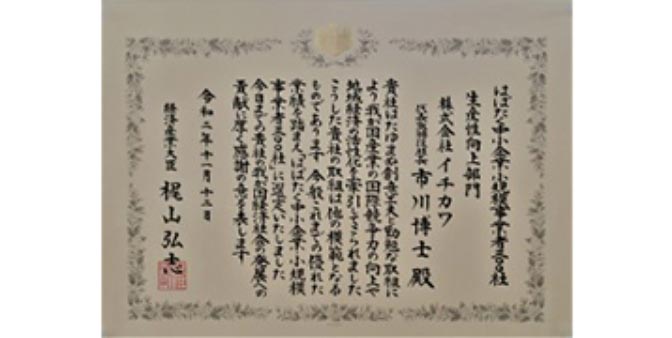 はばたく中小企業・小規模事業者三〇〇社
生産性向上部門
株式会社イチカワ
代表取締役社長 市川博士 殿
貴社はたゆまぬ創意工夫と勤勉な取組に
より我が国産業の国際競争力の向上や
地域経済の活性化を牽引してこられました
こうした貴社の取組は他の模範となる
ものであります 今般これまでの優れた
業績を踏まえ「はばたく中小企業・小規模
事業者三〇〇社」に選定いたしました
今日までの貴社の我が国経済社会の発展への
貢献に厚く感謝の意を表します
令和二年十一月十三日
経済産業大臣 梶山弘志